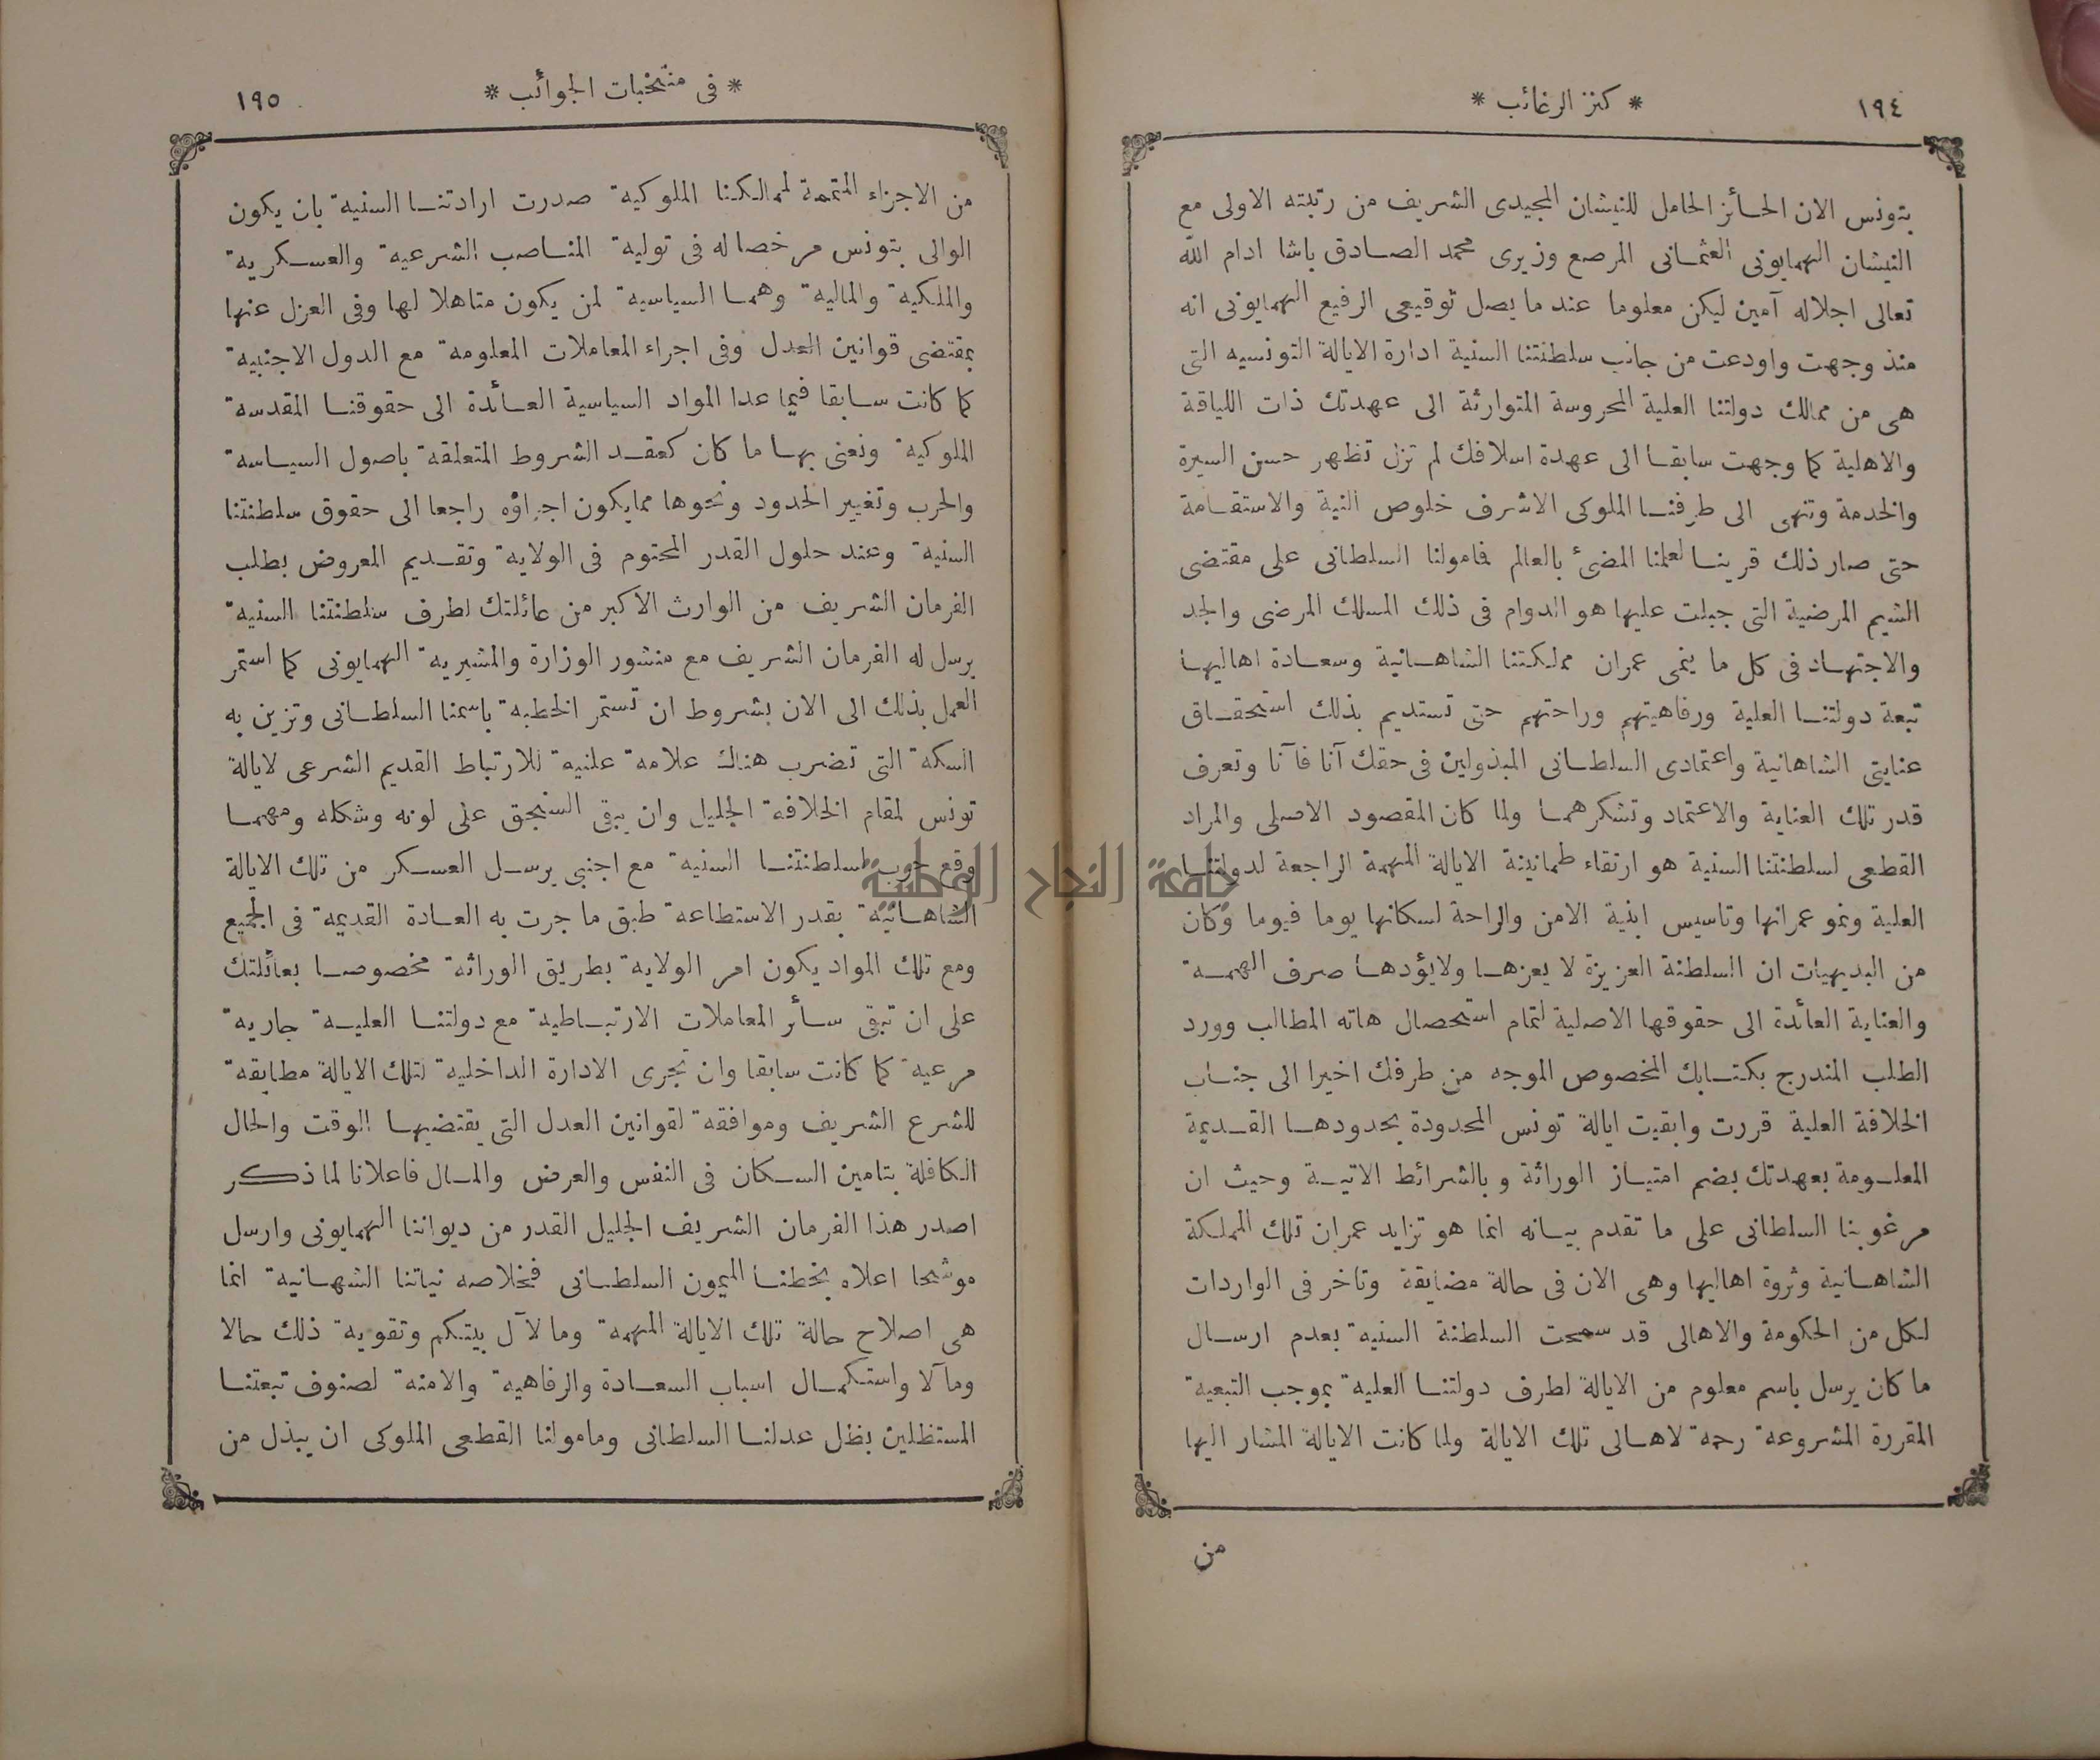 ١٩٤
* كنز الرغائب *
بتونس الان الحائز الحامل للنيشان المجيدى الشريف من رتبته الاولى مع
النيشان الهمايونى العثمانى المرصع وزيرى محمد الصادق باشا ادام الله
تعالى اجلاله آمين ليكن معلوما عند ما يصل توقيعى الرفيع الهمايونى انه
منذ وجهت واودعت من جانب سلطنتنا السنية ادارة الايالة التونسيه التى
هى من ممالك دولتنا العلية المحروسة المتوارثة الى عهدتك ذات اللياقة
والاهلية كما وجهت سابقا الى عهدة اسلافك لم تزل تظهر حسن السيرة
والخدمة وتنهى الى طرفنا الملوكى الاشرف خلوص النية والاستقامة
حتى صار ذلك قرينا لعلمنا المضئ بالعالم فامولنا السلطانى على مقتضى
الشيم المرضية التى جبلت عليها هو الدوام فى ذلك المسلك المرضى والجد
والاجتهاد فى كل ما ينمى عمران مملكتنا الشاهانية وسعادة اهاليها
تبعة دولتنا العلية ورفاهيتهم وراحتهم حتى تستديم بذلك استحقاق
عنايتى الشاهانية واعتمادى السلطانى المبذولين فى حقك آنا فآنا وتعرف
قدر تلك العناية والاعتماد وتشكرهما ولما كان المقصود الاصلى والمراد
القطعى لسلطنتنا السنية هو ارتقاء طمانينة الايالة المهمة الراجعة لدولتنا
العلية ونمو عمرانها وتاسيس ابنية الامن والراحة لسكانها يوما فيوما وكان
من البديهيات ان السلطنة العزيزة لا يعزها ولايؤدها صرف الهمة
والعناية العائدة الى حقوقها الاصلية لتمام استحصال هاته المطالب وورد
الطلب المندرج بكتابك المخصوص الموجه من طرفك اخيرا الى جناب
الخلافة العلية قررت وابقيت ايالة تونس المحدودة بحدودها القديمة
المعلومة بعهدتك بضم امتياز الوراثة وبالشرائط الاتية وحيث ان
مرغوبنا السلطانى على ما تقدم بيانه انما هو تزايد عمران تلك المملكة
الشاهانية وثروة اهاليها وهى الان فى حالة مضايقة وتاخر فى الواردات
لكل من الحكومة والاهالى قد سمحت السلطنة السنية بعدم ارسال
ما كان يرسل باسم معلوم من الايالة لطرف دولتنا العلية بموجب التبعية
المقررة المشروعة رحمة لاهالى تلك الايالة ولما كانت الايالة المشار اليها
من
* فى منتخبات الجوائب *
١٩٥
من الاجزاء المتممة لممالكنا الملوكية صدرت ارادتنا السنية بان يكون
الوالى بتونس مرخصا له فى تولية المناصب الشرعية والعسكرية
والملكية والمالية وهما السياسية لمن يكون متاهلا لها وفى العزل عنها
بمقتضى قوانين العدل وفى اجراء المعاملات المعلومة مع الدول الاجنبية
كما كانت سابقا فيما عدا المواد السياسية العائدة الى حقوقنا المقدسة
الملوكية ونعنى بها ما كان كعقد الشروط المتعلقة باصول السياسة
والحرب وتغيير الحدود ونحوها مما يكون اجراؤه راجعا الى حقوق سلطنتنا
السنية وعند حلول القدر المحتوم فى الولاية وتقديم المعروض بطلب
الفرمان الشريف من الوارث الاكبر من عائلتك لطرف سلطنتنا السنية
يرسل له الفرمان الشريف مع منشور الوزارة والمشيرية الهمايونى كما استمر
العمل بذلك الى الان بشروط ان تستمر الخطبة باسمنا السلطانى وتزين به
السكة التى تضرب هناك علامة علنية للارتباط القديم الشرعى لايالة
تونس لمقام الخلافة الجليل وان يبقى السنجق على لونه وشكله ومهما
وقع حرب لسلطنتنا السنية مع اجنبى يرسل العسكر من تلك الايالة
الشاهانية بقدر الاستطاعة طبق ما جرت به العادة القديمة فى الجميع
ومع تلك المواد يكون امر الولاية بطريق الوراثة مخصوصا بعائلتك
على ان تبقى سائر المعاملات الارتباطية مع دولتنا العلية جارية
مرعية كما كانت سابقا وان تجرى الادارة الداخلية لتلك الايالة مطابقة
للشرع الشريف وموافقة لقوانين العدل التى يقتضيها الوقت والحال
الكافلة بتامين السكان فى النفس والعرض والمال فاعلانا لما ذكر
اصدر هذا الفرمان الشريف الجليل القدر من ديواننا الهمايونى وارسل
موشحا اعلاه بخطنا الميمون السلطانى فخلاصة نياتنا الشهانية انما
هى اصلاح حالة تلك الايالة المهمة وما لآل بيتكم وتقوية ذلك حالا
ومآلا واستكمال اسباب السعادة والرفاهية والامنة لصنوف تبعتنا
المستظلين بظل عدلنا السلطانى ومامولنا القطعى الملوكى ان يبذل من
جامعة النجاح الوطنية